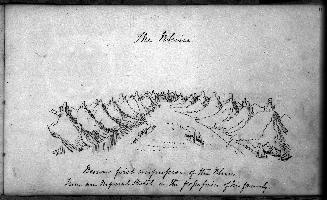 The Rhine
Benson's first impression of the Rhine.
From an original sketch in the possession of his family.